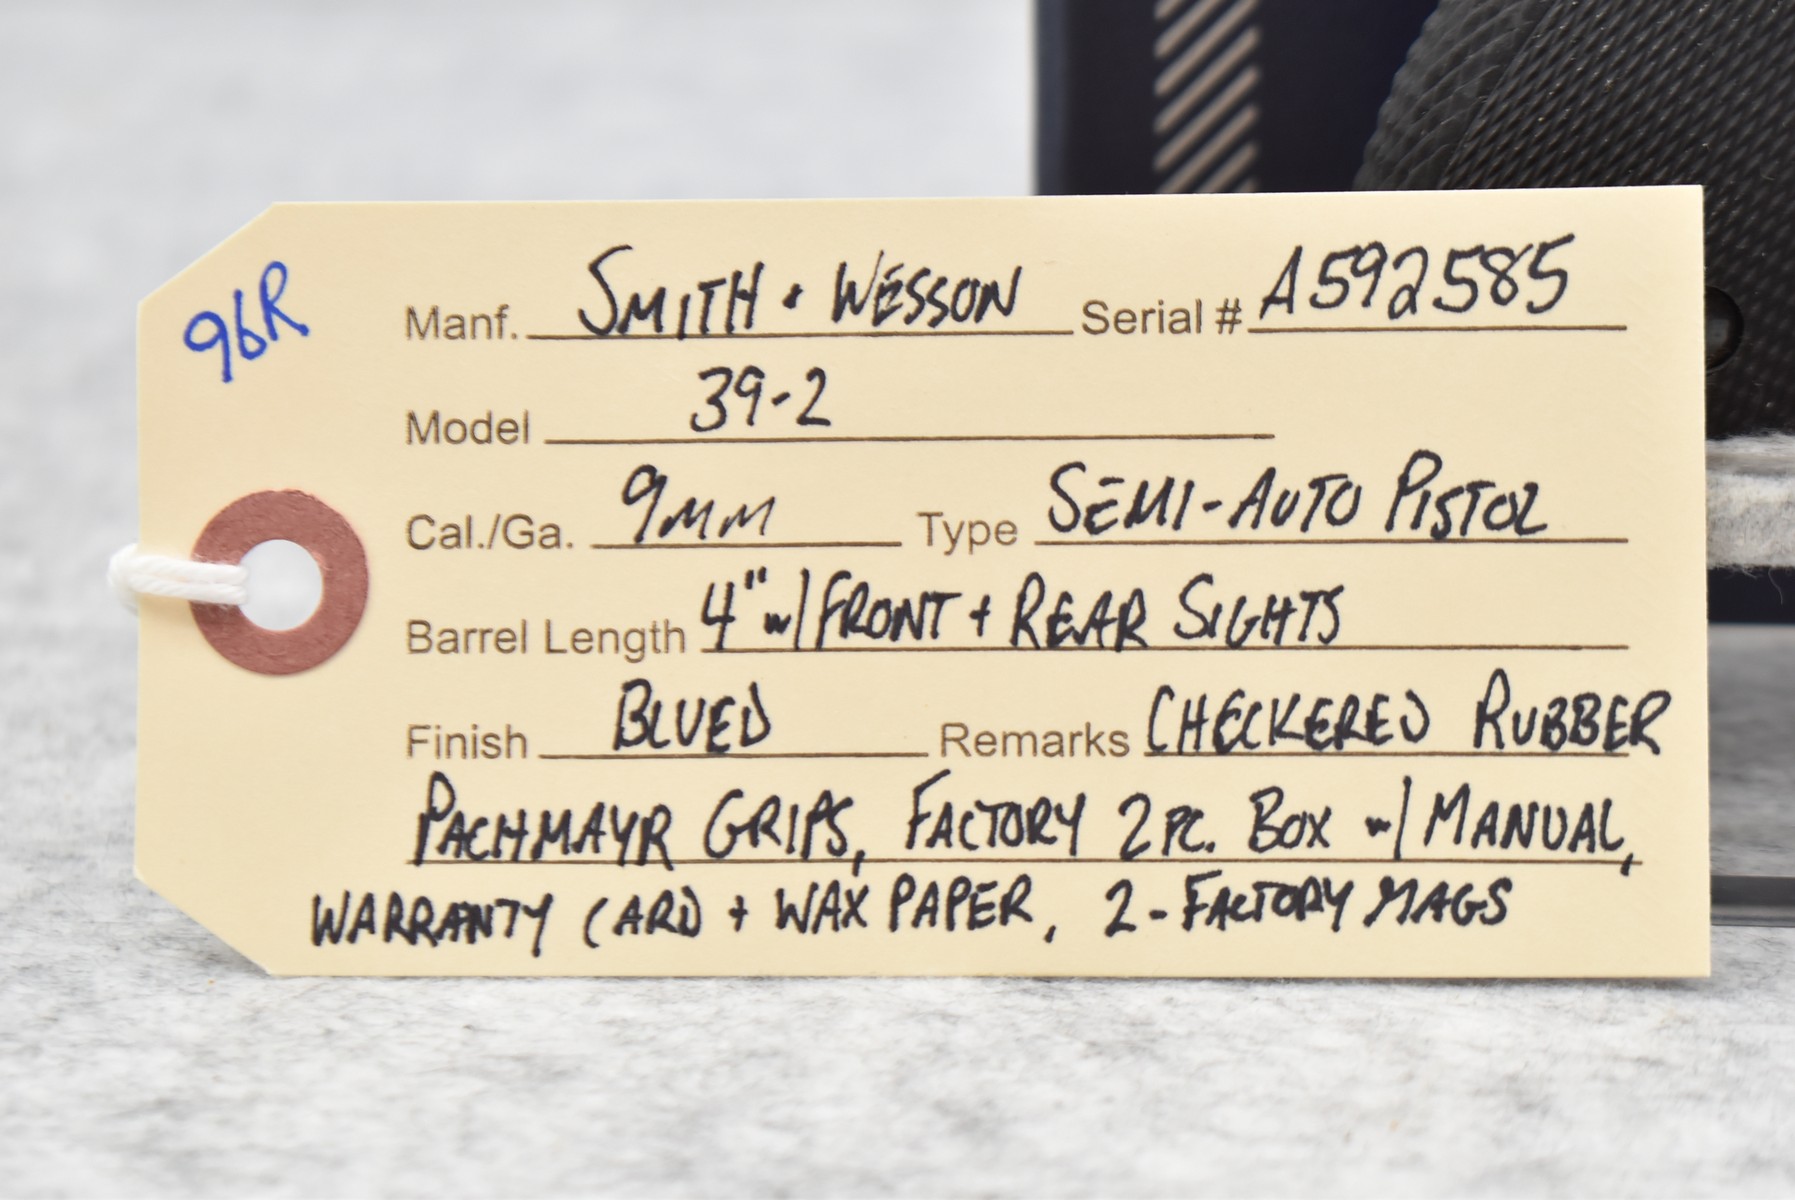 96R
Manf. SMITH + WESSON Serial # A592585
Model 39-2
Cal./Ga. 9MM Type SEMI-AUTO PISTOL
Barrel Length 4" w/ FRONT + REAR SIGHTS
Finish BLUED Remarks CHECKERED RUBBER
PACHMAYR GRIPS, FACTORY 2 PC. BOX w/ MANUAL,
WARRANTY CARD + WAX PAPER, 2-FACTORY MAGS